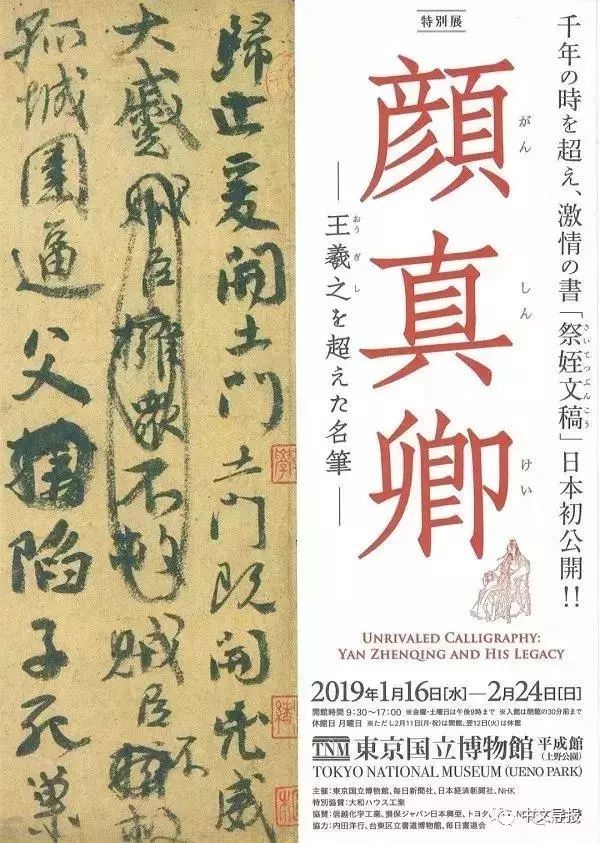 特別展
千年の時を超え、激情の書「祭姪文稿」日本初公開!!
さいてつぶんこう
顔真卿
がん しん けい
―王羲之を超えた名筆―
おう ぎ し
UNRIVALED CALLIGRAPHY:
YAN ZHENQING AND HIS LEGACY
2019年1月16日[水]―2月24日[日]
開館時間 9:30〜17:00 ※金曜・土曜日は午後9時まで ※入館は閉館の30分前まで
休館日 月曜日 ※ただし2月11日(月・祝)は開館、翌12日(火)は休館
TNM 東京国立博物館 平成館
(上野公園)
TOKYO NATIONAL MUSEUM (UENO PARK)
主催:東京国立博物館、毎日新聞社、日本経済新聞社、NHK
特別協賛:大和ハウス工業
協賛:信越化学工業、損保ジャパン日本興亜、トヨタ、
協力:内田洋行、台東区立書道博物館、毎日書道会
中文导报
歸止爰開土門土門既開兇威
大蹙賊臣擁衆不救賊臣不
孤城圍逼父陷子死巢